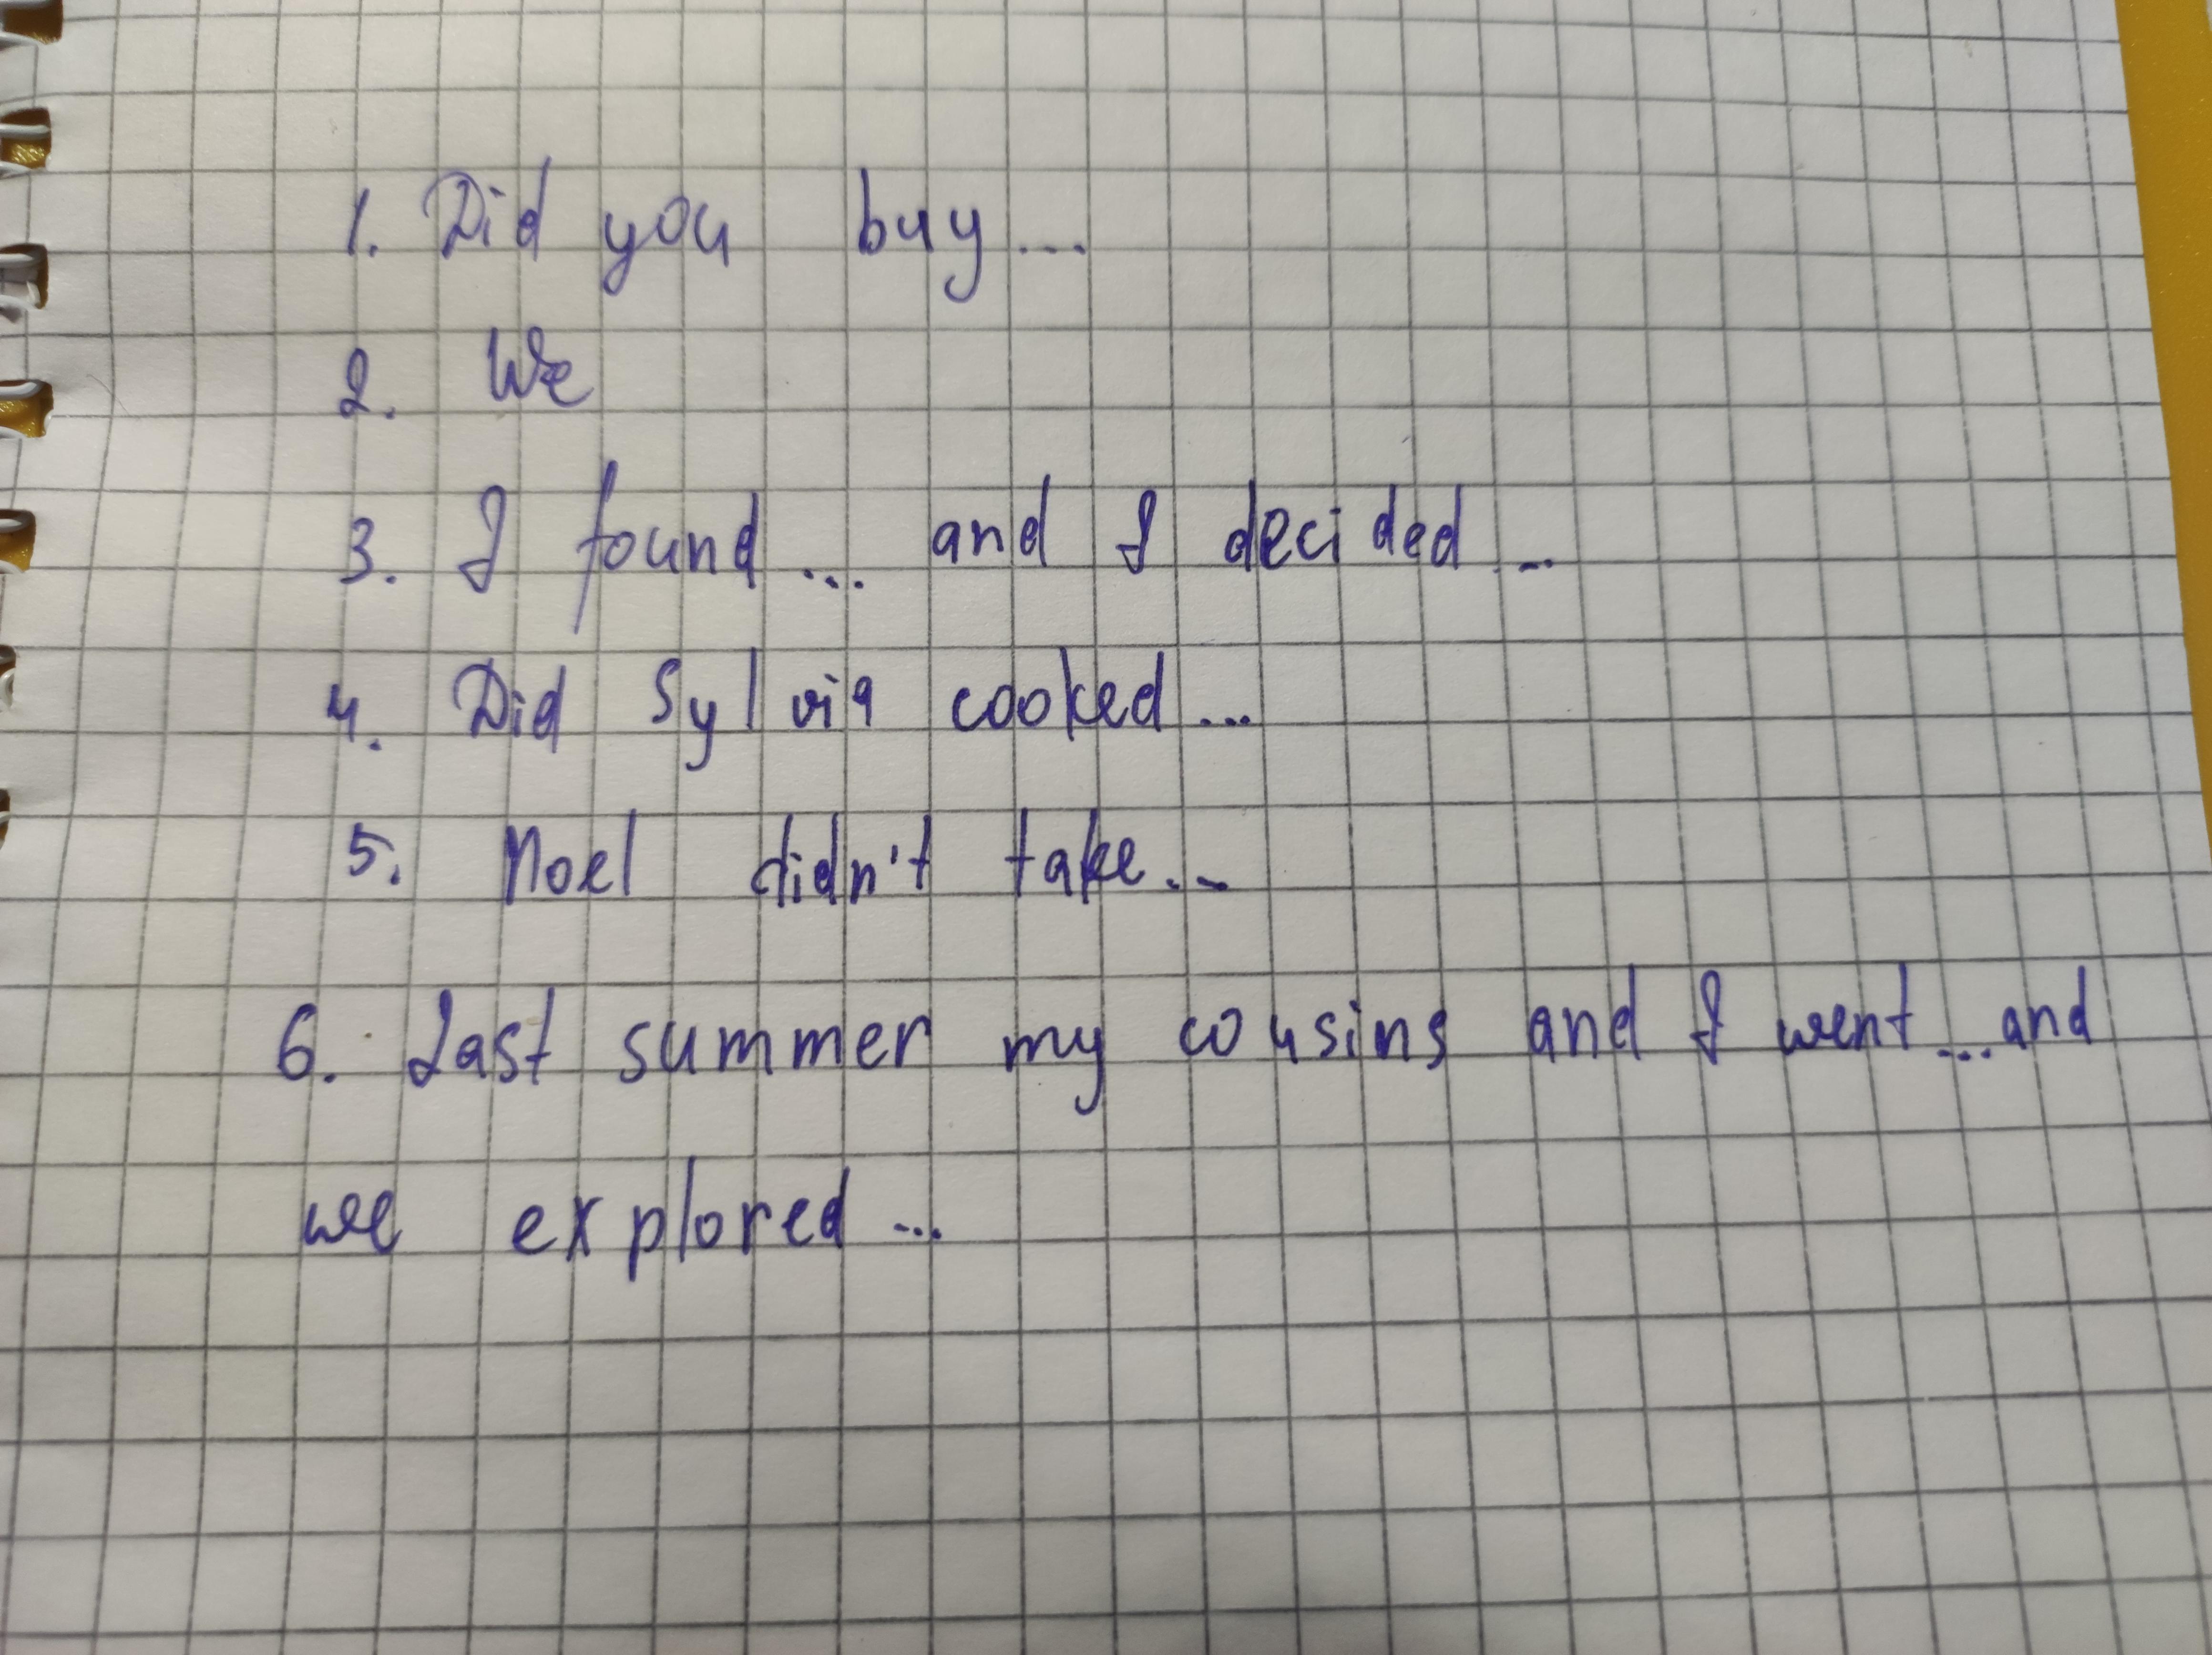 1. Did you buy...
2. We
3. I found... and I decided...
4. Did Sylvia cooked...
5. Noel didn't take...
6. Last summer my cousins and I went...and
we explored...